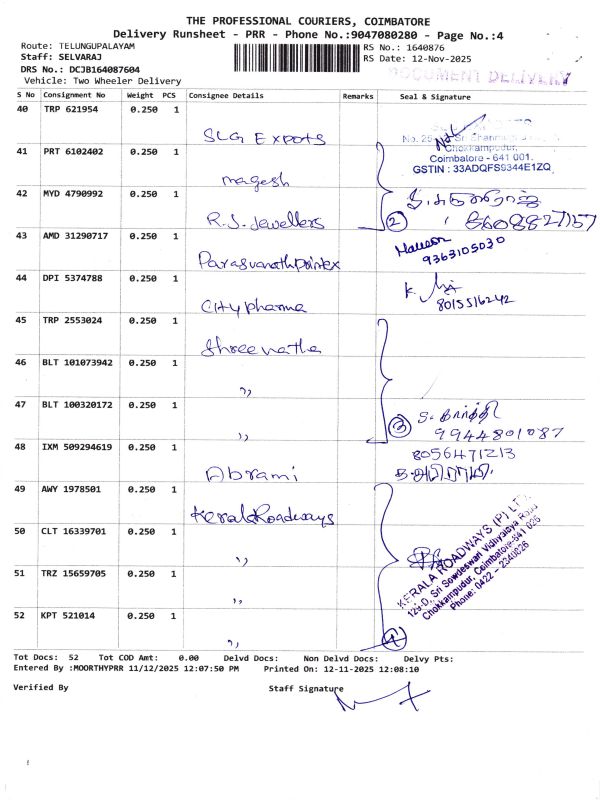 THE PROFESSIONAL COURIERS, COIMBATORE
Delivery Runsheet - PRR - Phone No.:9047080280 - Page No.:4
Route: TELUNGUPALAYAM
Staff: SELVARAJ
DRS No.: DCJB164087604
Vehicle: Two Wheeler Delivery
RS No.: 1640876
RS Date: 12-Nov-2025
DOCUMENT DELIVERY
S No Consignment No Weight PCS Consignee Details Remarks Seal & Signature
40 TRP 621954 0.250 1
SLG Expots
41 PRT 6102402 0.250 1
magesh
No. 25
Chokkampudur,
Coimbatore - 641 001.
GSTIN : 33ADQFS9344E1ZQ
42 MYD 4790992 0.250 1
R.S. Jewellers
2
8608827157
43 AMD 31290717 0.250 1
Parasvanath printex
9363105030
44 DPI 5374788 0.250 1
City pharma
8015516242
45 TRP 2553024 0.250 1
Shreenatha
46 BLT 101073942 0.250 1
,,
47 BLT 100320172 0.250 1
,,
3
9944801087
48 IXM 509294619 0.250 1
Abrami
8056471213
49 AWY 1978501 0.250 1
Kerala Roadways
50 CLT 16339701 0.250 1
,,
51 TRZ 15659705 0.250 1
,,
52 KPT 521014 0.250 1
,,
KERALA ROADWAYS (P) LTD
125-D, Sri Sowdeswari Vidhyalaya Road
Chokkampudur, Coimbatore-641 026
Phone: 0422 - 2340826
4
Tot Docs: 52 Tot COD Amt: 0.00 Delvd Docs: Non Delvd Docs: Delvy Pts:
Entered By :MOORTHYPRR 11/12/2025 12:07:50 PM Printed On: 12-11-2025 12:08:10
Verified By Staff Signature